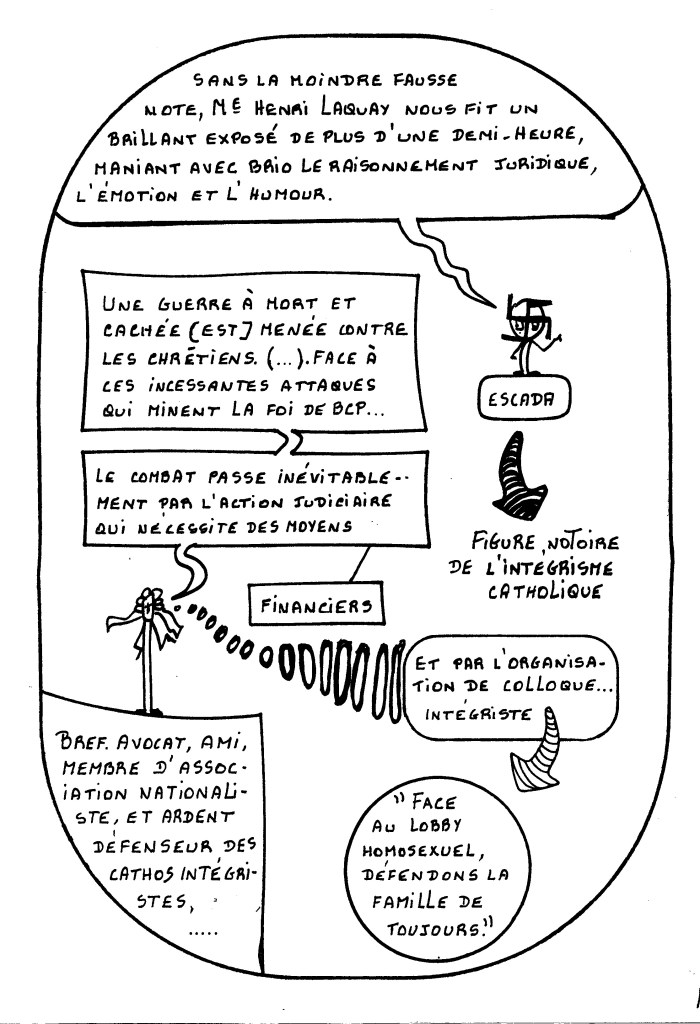 SANS LA MOINDRE FAUSSE
NOTE, Me HENRI LAQUAY NOUS FIT UN
BRILLANT EXPOSÉ DE PLUS D'UNE DEMI-HEURE,
MANIANT AVEC BRIO LE RAISONNEMENT JURIDIQUE,
L'ÉMOTION ET L'HUMOUR.
UNE GUERRE À MORT ET
CACHÉE [EST] MENÉE CONTRE
LES CHRÉTIENS. (...). FACE À
CES INCESSANTES ATTAQUES
QUI MINENT LA FOI DE BCP...
ESCADA
LE COMBAT PASSE INÉVITABLE--
MENT PAR L'ACTION JUDICIAIRE
QUI NÉCESSITE DES MOYENS
FINANCIERS
FIGURE NOTOIRE
DE L'INTÉGRISME
CATHOLIQUE
ET PAR L'ORGANISA-
TION DE COLLOQUE...
INTÉGRISTE
BREF. AVOCAT, AMI,
MEMBRE D'ASSOC-
IATION NATIONALI-
STE, ET ARDENT
DÉFENSEUR DES
CATHOS INTÉGRI-
STES,
.....
"FACE
AU LOBBY
HOMOSEXUEL,
DÉFENDONS LA
FAMILLE DE
TOUJOURS."